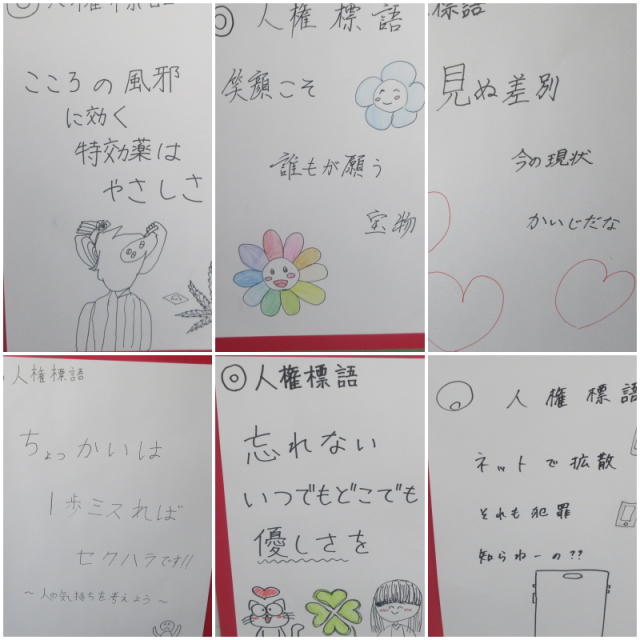 人権標語
こころの風邪
に効く
特効薬は
やさしさ
◎ 人権標語
笑顔こそ
誰もが願う
宝物
標語
見ぬ差別
今の現状
かいじだな
人権標語
ちょっかいは
1歩ミスれば
セクハラです!!
～人の気持ちを考えよう～
◎人権標語
忘れない
いつでもどこでも
優しさを
人権標語
ネットで拡散
それも犯罪
知らねーの??